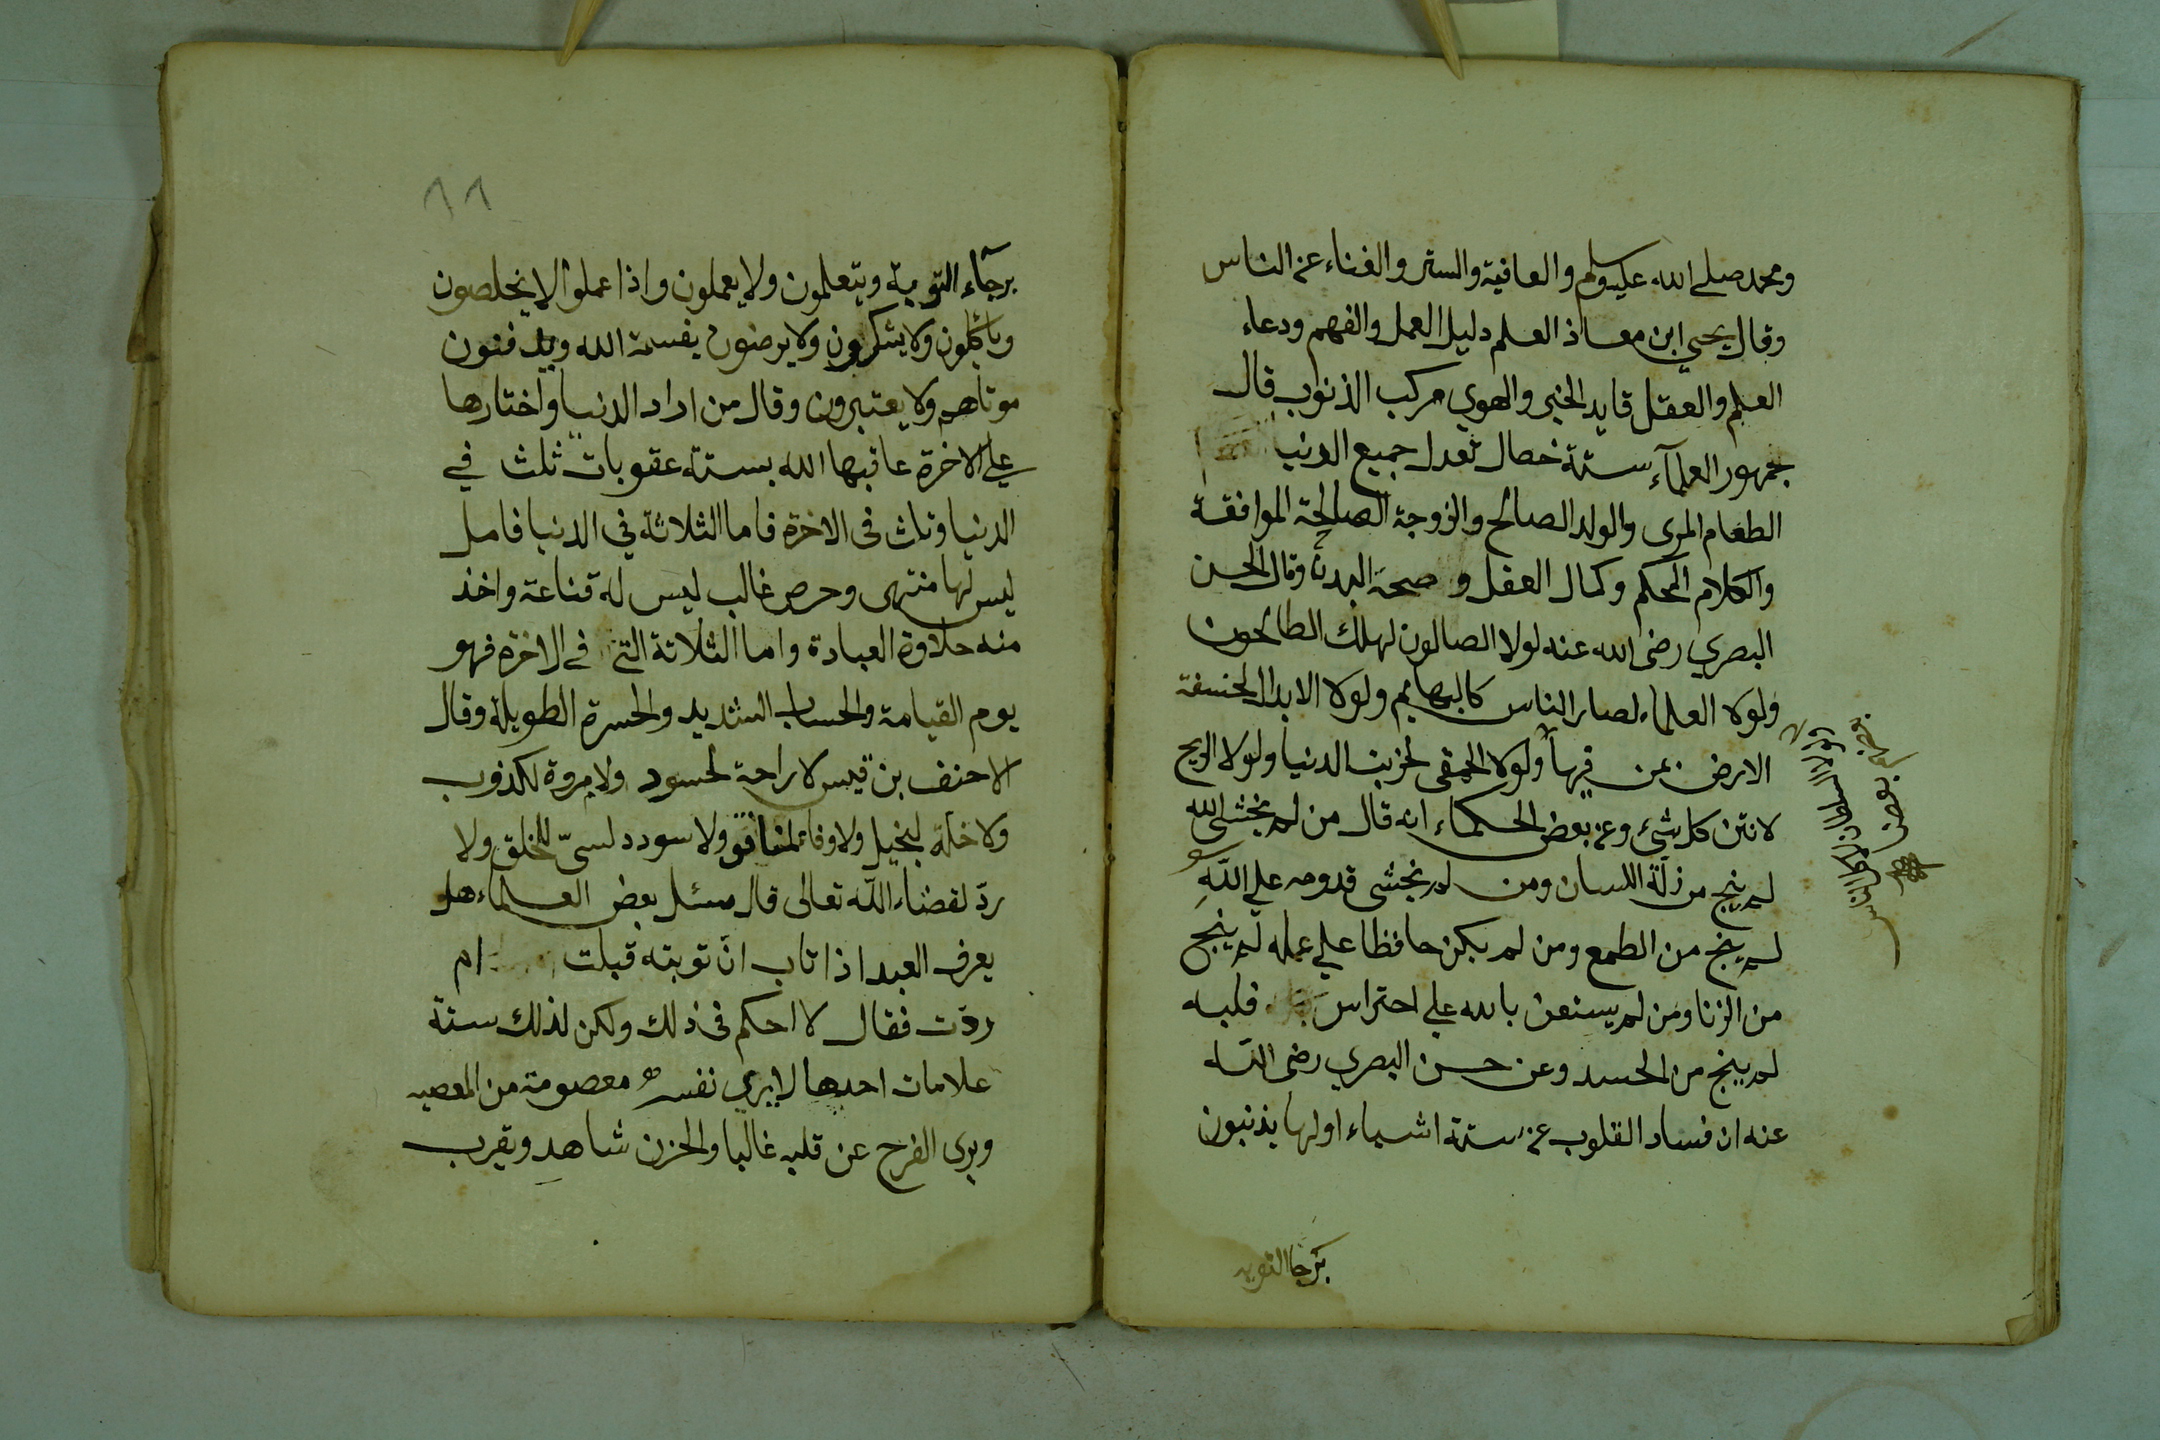 ومحمد صلى الله عليه وسلم والعافية والستر والغناء عن الناس
وقال يحيي ابن معاذ العلم دليل العمل والفهم ودعاء
العلم والعقل قايد الخير والهوي مركب الذنوب قال
جمهور العلمآء ستة خصال تعدل جميع الدنيا
الطعام المرى والولد الصالح والزوجة الصالحة الموافقة
والكلام المحكم وكمال العقل و صحة البدن وقال الحسن
البصري رضى الله عنه لولا الصالون لهلك الطالحون
ولولا العلماء لصار الناس كالبهايم ولولا الابدال لخسفة
الارض بمن فيها ولولا الحمقى لخربت الدنيا ولولا الريح
لانتن كل شيء وعن بعض الحكماء انه قال من لم يخشى الله
لم ينج من زلة اللسان ومن لم يخشى قدومه علي الله
لم ينج من الطمع ومن لم يكن حافظا علي عمله لم ينج
من الزنا ومن لم يستعن بالله علي احتراس قلبه
لم ينج من الحسد وعن حسن البصري رضى الله
عنه ان فساد القلوب عن ستة اشياء اولها يذنبون
ولولا السلطان لاكل الناس
بعضهم بعض
برجا التوبه
١١
برجآء التوبة ويتعلمون ولا يعملون واذا عملوا لا يخلصون
وياكلون ولا يشكرون ولا يرضون بقسمة الله ويدفنون
موتاهم ولا يعتبرون وقال من اراد الدنيا واختارها
علي الاخرة عاقبها الله بستة عقوبات ثلث في
الدنيا وثلث في الاخرة فاما الثلاثة في الدنيا فامل
ليس لها منتهى وحرص غالب ليس له قناعة واخذ
منه حلاوة العبادة واما الثلاثة التي في الاخرة فهو
يوم القيامة والحساب الشديد والحسرة الطويلة وقال
الاحنف بن قيس لا راحة لحسود ولا مروة لكذوب
ولا خلة لبخيل ولا وفاء لمنافق ولا سودد لسيّ الخلق ولا
ردّ لقضاء الله تعالى قال سئل بعض العلماء هل
يعرف العبد اذا تاب انّ توبته قبلت ام
ردّت فقال لا احكم في ذلك ولكن لذلك ستة
علامات احدها لا يري نفسه معصومة من المعصيه
ويرى الفرح عن قلبه غالبا والحزن شاهد ويقرب